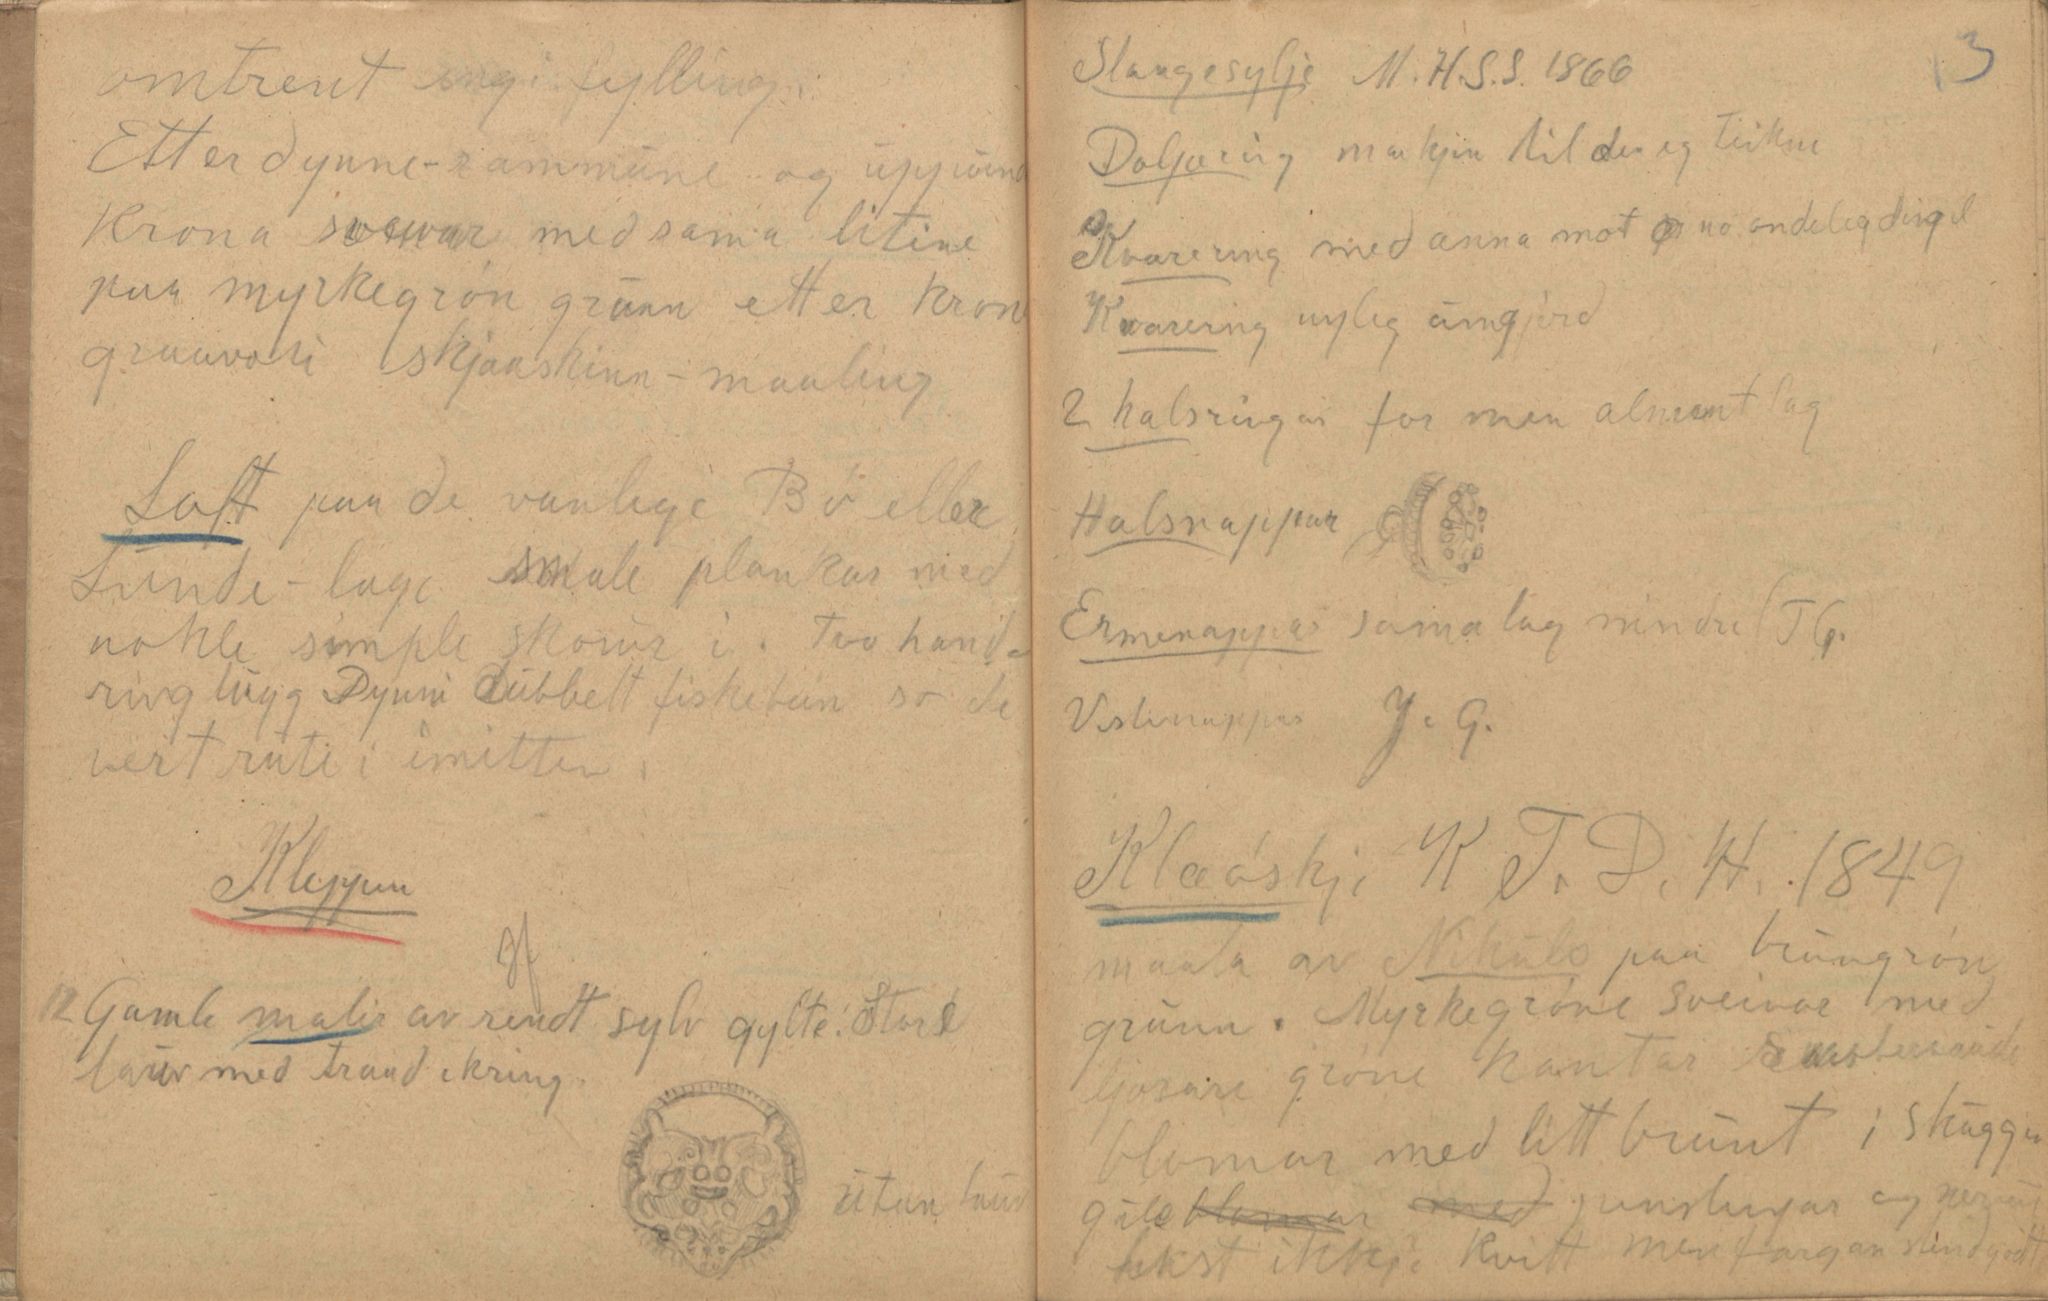 omtrent ingi fylling.
Etter dynne-rammune og uppium
Krona svevar med sama litine
paa myrkegrön grunn etter Kron
graavori skjaaskinn-maaling
Loft paa de vanlege Bö eller
Lunde-lage smale plankar med
nokle simple skorur i. Tvo hand-
ringlugg Dynni dubbelt fiskebein so de
vert rute i imitten.
Kleppen
12 Gamle malir av reindt sylv gylte. Store
lauv med traad ikring.
utan lauv
13
Slangesylje M.H.S.S. 1866
Doljering makjin til den eg teikne
Kvarering med anna mot no andeleg dingel
Kvarering nyleg umgjord
2 halsringar for men alment lag
Halsnappar
Ermenappar sama lag mindre T G.
Vestenappar J. G.
Klæöskje K T. D. H. 1849
maala av Nikuls paa brungrön
grunn. Myrkegröne sveivar med
ljosare gröne kantar
blomar med litt brunt i skuggen
gule blomar med punslugar og
lekst ikkje kvitt men fargan